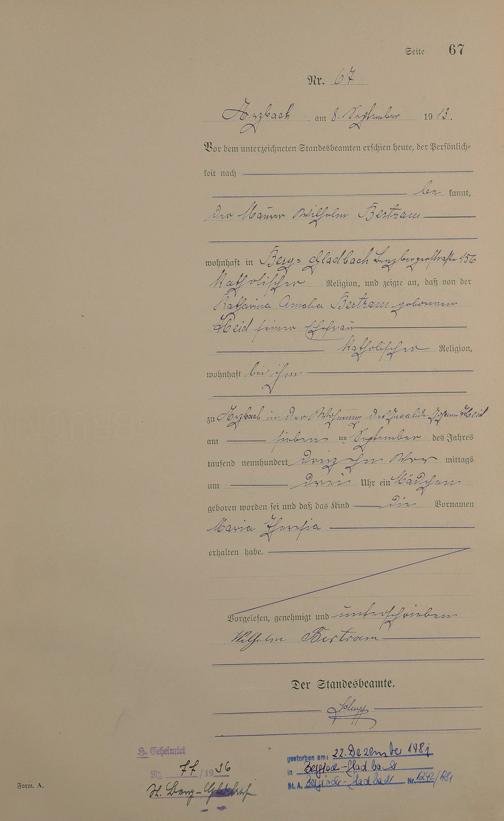 Seite 67
Nr. 67
am 8 September 1913.
Vor dem unterzeichneten Standesbeamten erschien heute, der Persönlich-
keit nach
be kannt,
der Maurer Wilhelm Bertram
wohnhaft in Berg. Gladbach
katholischer Religion, und zeigte an, daß von der
Katharina Amalia Bertram geborenen
Heid seiner Ehefrau
katholischer Religion,
wohnhaft bei ihm
zu in der Wohnung
am sieben ten September des Jahres
tausend neunhundert dreizehn Vor mittags
um drei Uhr ein Mädchen
geboren worden sei und daß das Kind die Vornamen
Maria Theresia
erhalten habe.
Vorgelesen, genehmigt und unterschrieben
Wilhelm Bertram
Der Standesbeamte.
gestorben am: 22. Dezember 1981
in Bergisch Gladbach
St. A. Bergisch Gladbach Nr.
Nr. 77/1936
Form. A.